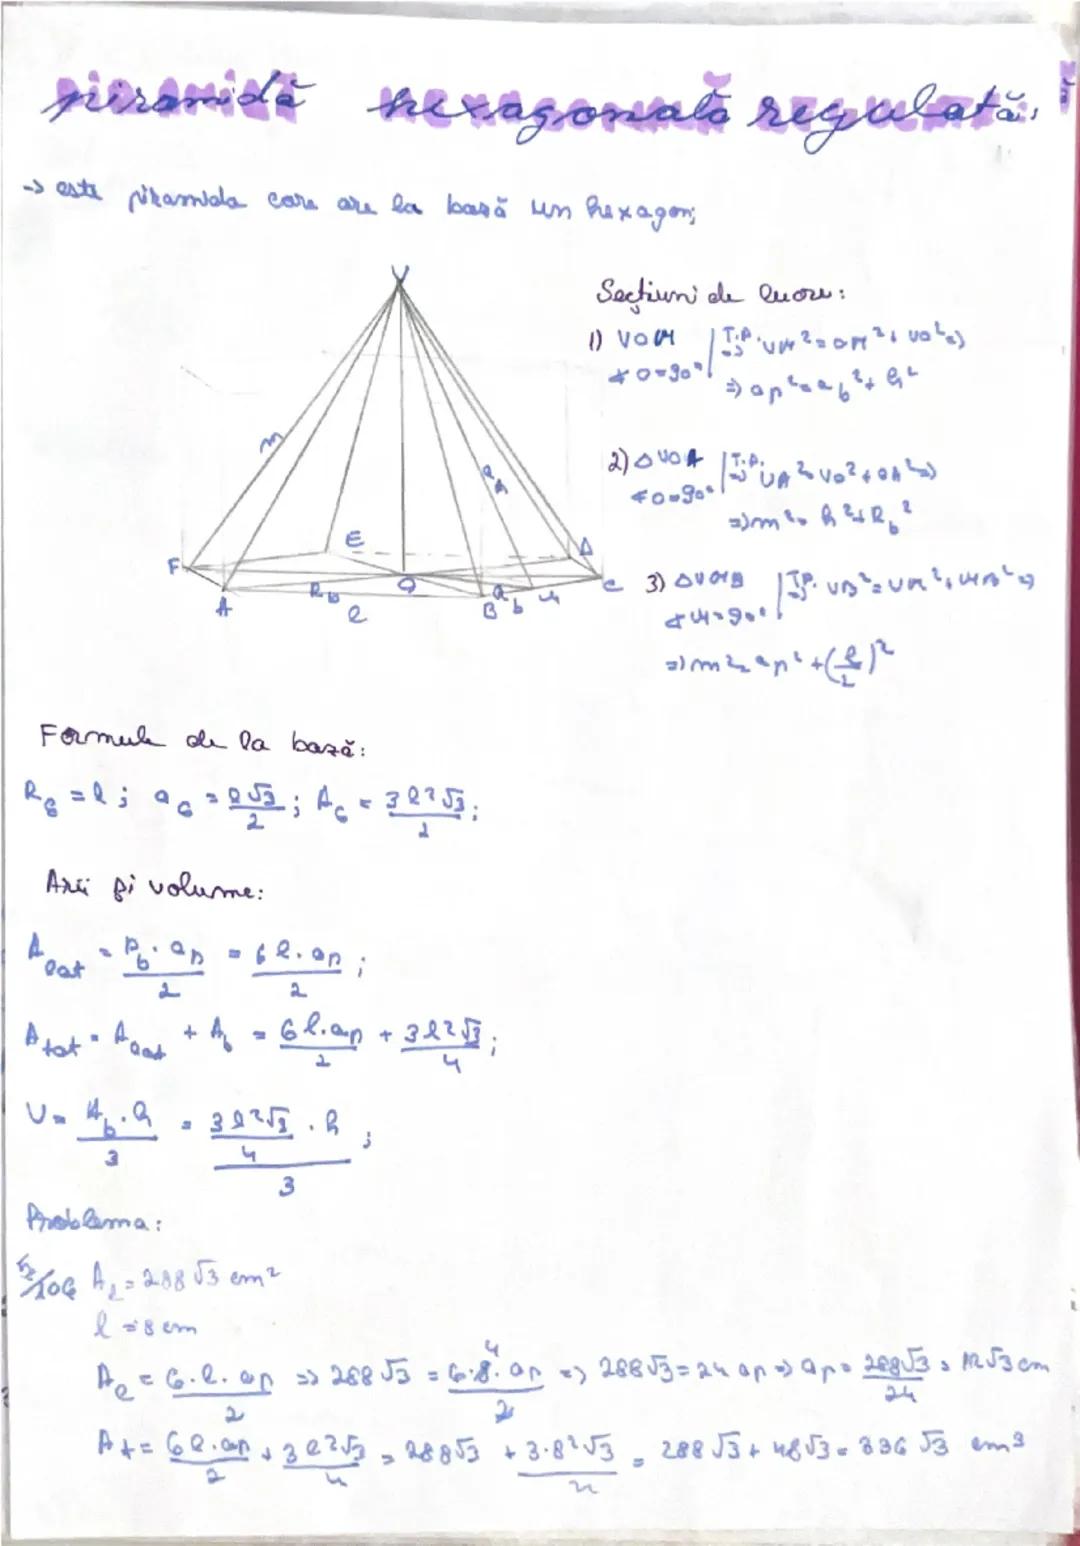 piramidă hexagonală regulată:
-> este piramida care are la bază un hexagon;
Secțiuni de lucru:
1) VOM | T.P. => VM² = OM² + VO² =>
∢O=90° => ap² = a_b² + h²
2) △VOA | T.P. => VA² = VO² + OA² =>
∢O=90° => m² = h² + R_b²
3) △VMB | T.P. => VB² = VM² + MB² =>
∢M=90°
=> m² = ap² + (l/2)²
V
m
ap
F
E
D
A
R_b
O
l
B
a_b
M
C
Formule de la bază:
R₆ = l; a₆ = l√3/2; A₆ = 3l²√3/2;
Arii și volume:
A_lat = P_b·ap/2 = 6l·ap/2;
A_tot = A_lat + A_b = 6l·ap/2 + 3l²√3/4;
V = A_b·h/3 = (3l²√3/4 · h)/3;
Problema:
A_l = 288√3 cm²
l = 8 cm
A_l = 6·l·ap/2 => 288√3 = 6·8·ap/2 => 288√3 = 24 ap => ap = 288√3/24 = 12√3 cm
A_t = 6l·ap/2 + 3l²√3/4 = 288√3 + 3·8²√3/4 = 288√3 + 48√3 = 336√3 cm³